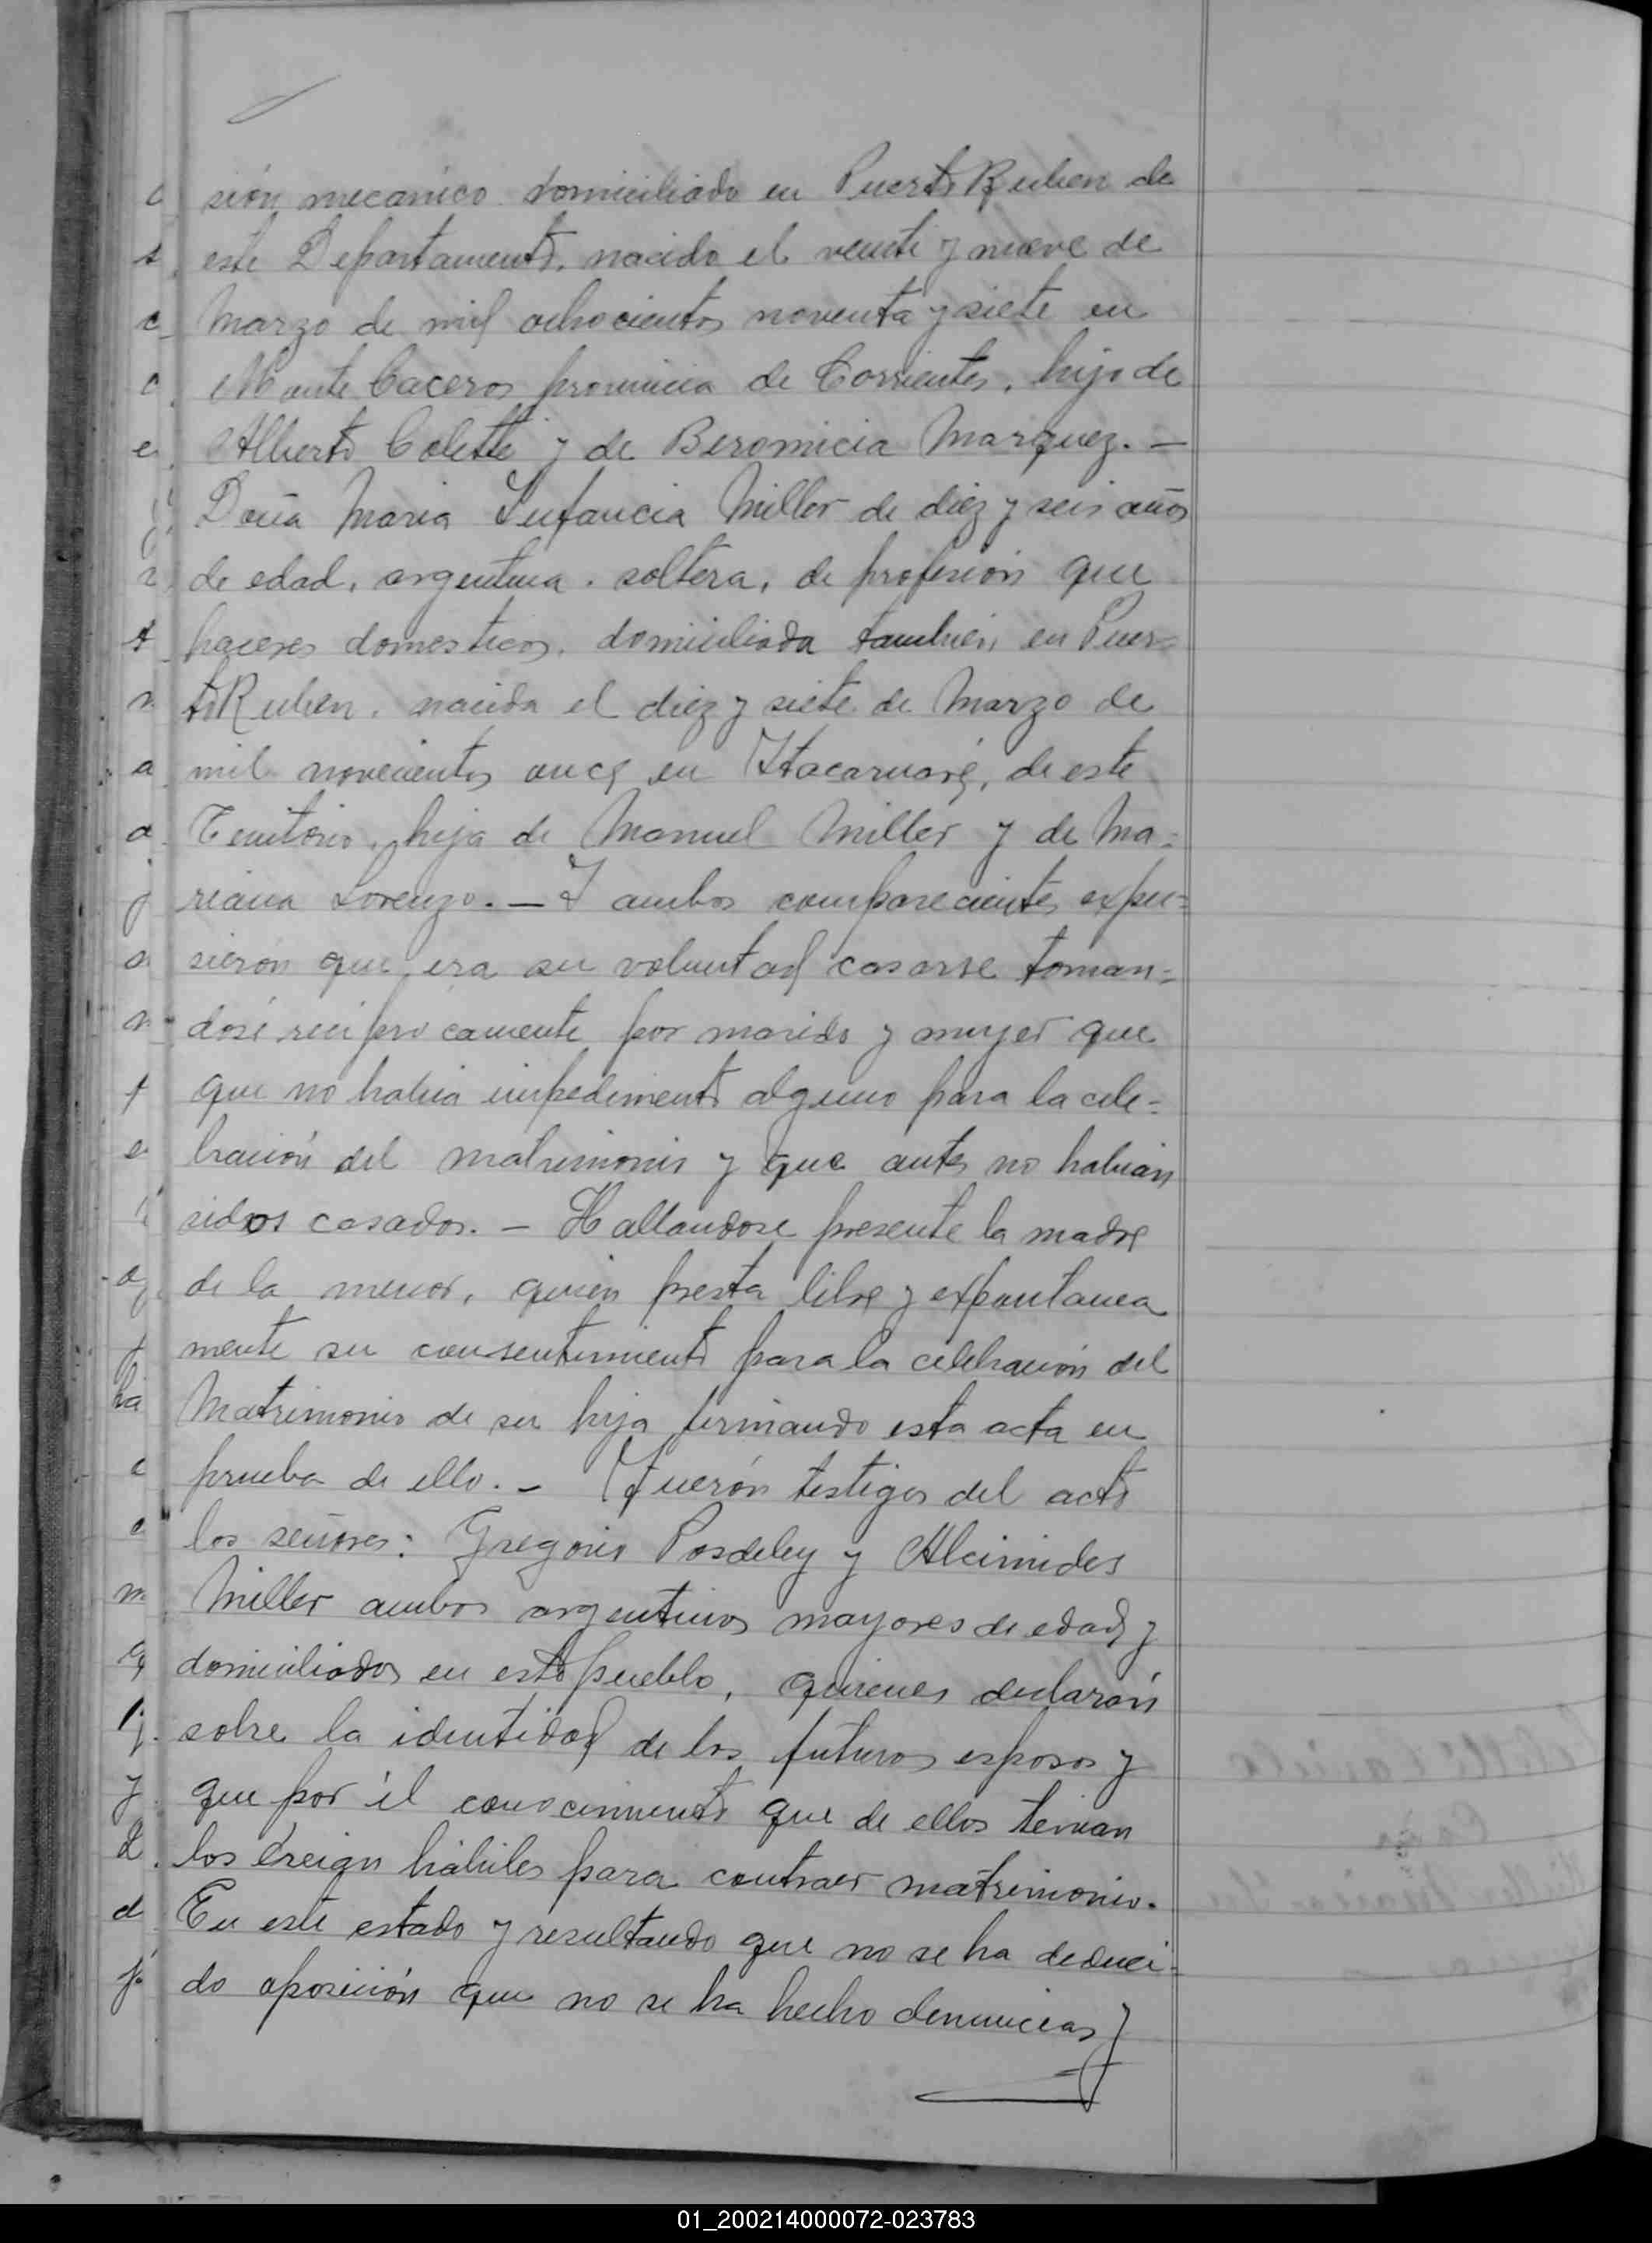 sión mecanico domiciliado en Puerto Ruben de
este Departamento, nacido el veinte y nueve de
Marzo de mil ochocientos noventa y siete en
Monte Caceros provincia de Corrientes, hijo de
Alberto Colette y de Beromicia Marquez. —
Doña Maria Infancia Miller de diez y seis años
de edad, argentina, soltera, de profesión que
haceres domesticos, domiciliada tambien en Puer-
to Ruben, nacida el diez y siete de Marzo de
mil novecientos once en Itacaruaré, de este
Territorio, hija de Manuel Miller y de Ma=
riana Lorenzo. — Y ambos comparecientes expu=
sierón que era su voluntad casarse toman=
dosé reciprocamente por marido y mujer que
que no habia impedimento alguno para la cele=
bración del matrimonio y que antes no habian
sidos casados. — Hallandose presente la madre
de la menor, quien presta libre y expontanea
mente su consentimiento para la celebración del
Matrimonio de su hija firmando esta acta en
prueba de ello. — Fuerón testigos del acto
los señores: Gregorio Posdeley y Alcimides
Miller ambos argentinos mayores de edad y
domiciliados en esto pueblo, quienes declarón
sobre la identidad de los futuros esposos y
que por él conocimiento que de ellos tenian
los creian hábiles para contraer matrimonio.
En este estado y resultando que no se ha deduci-
do oposición que no se ha hecho denuncias y
01_200214000072-023783